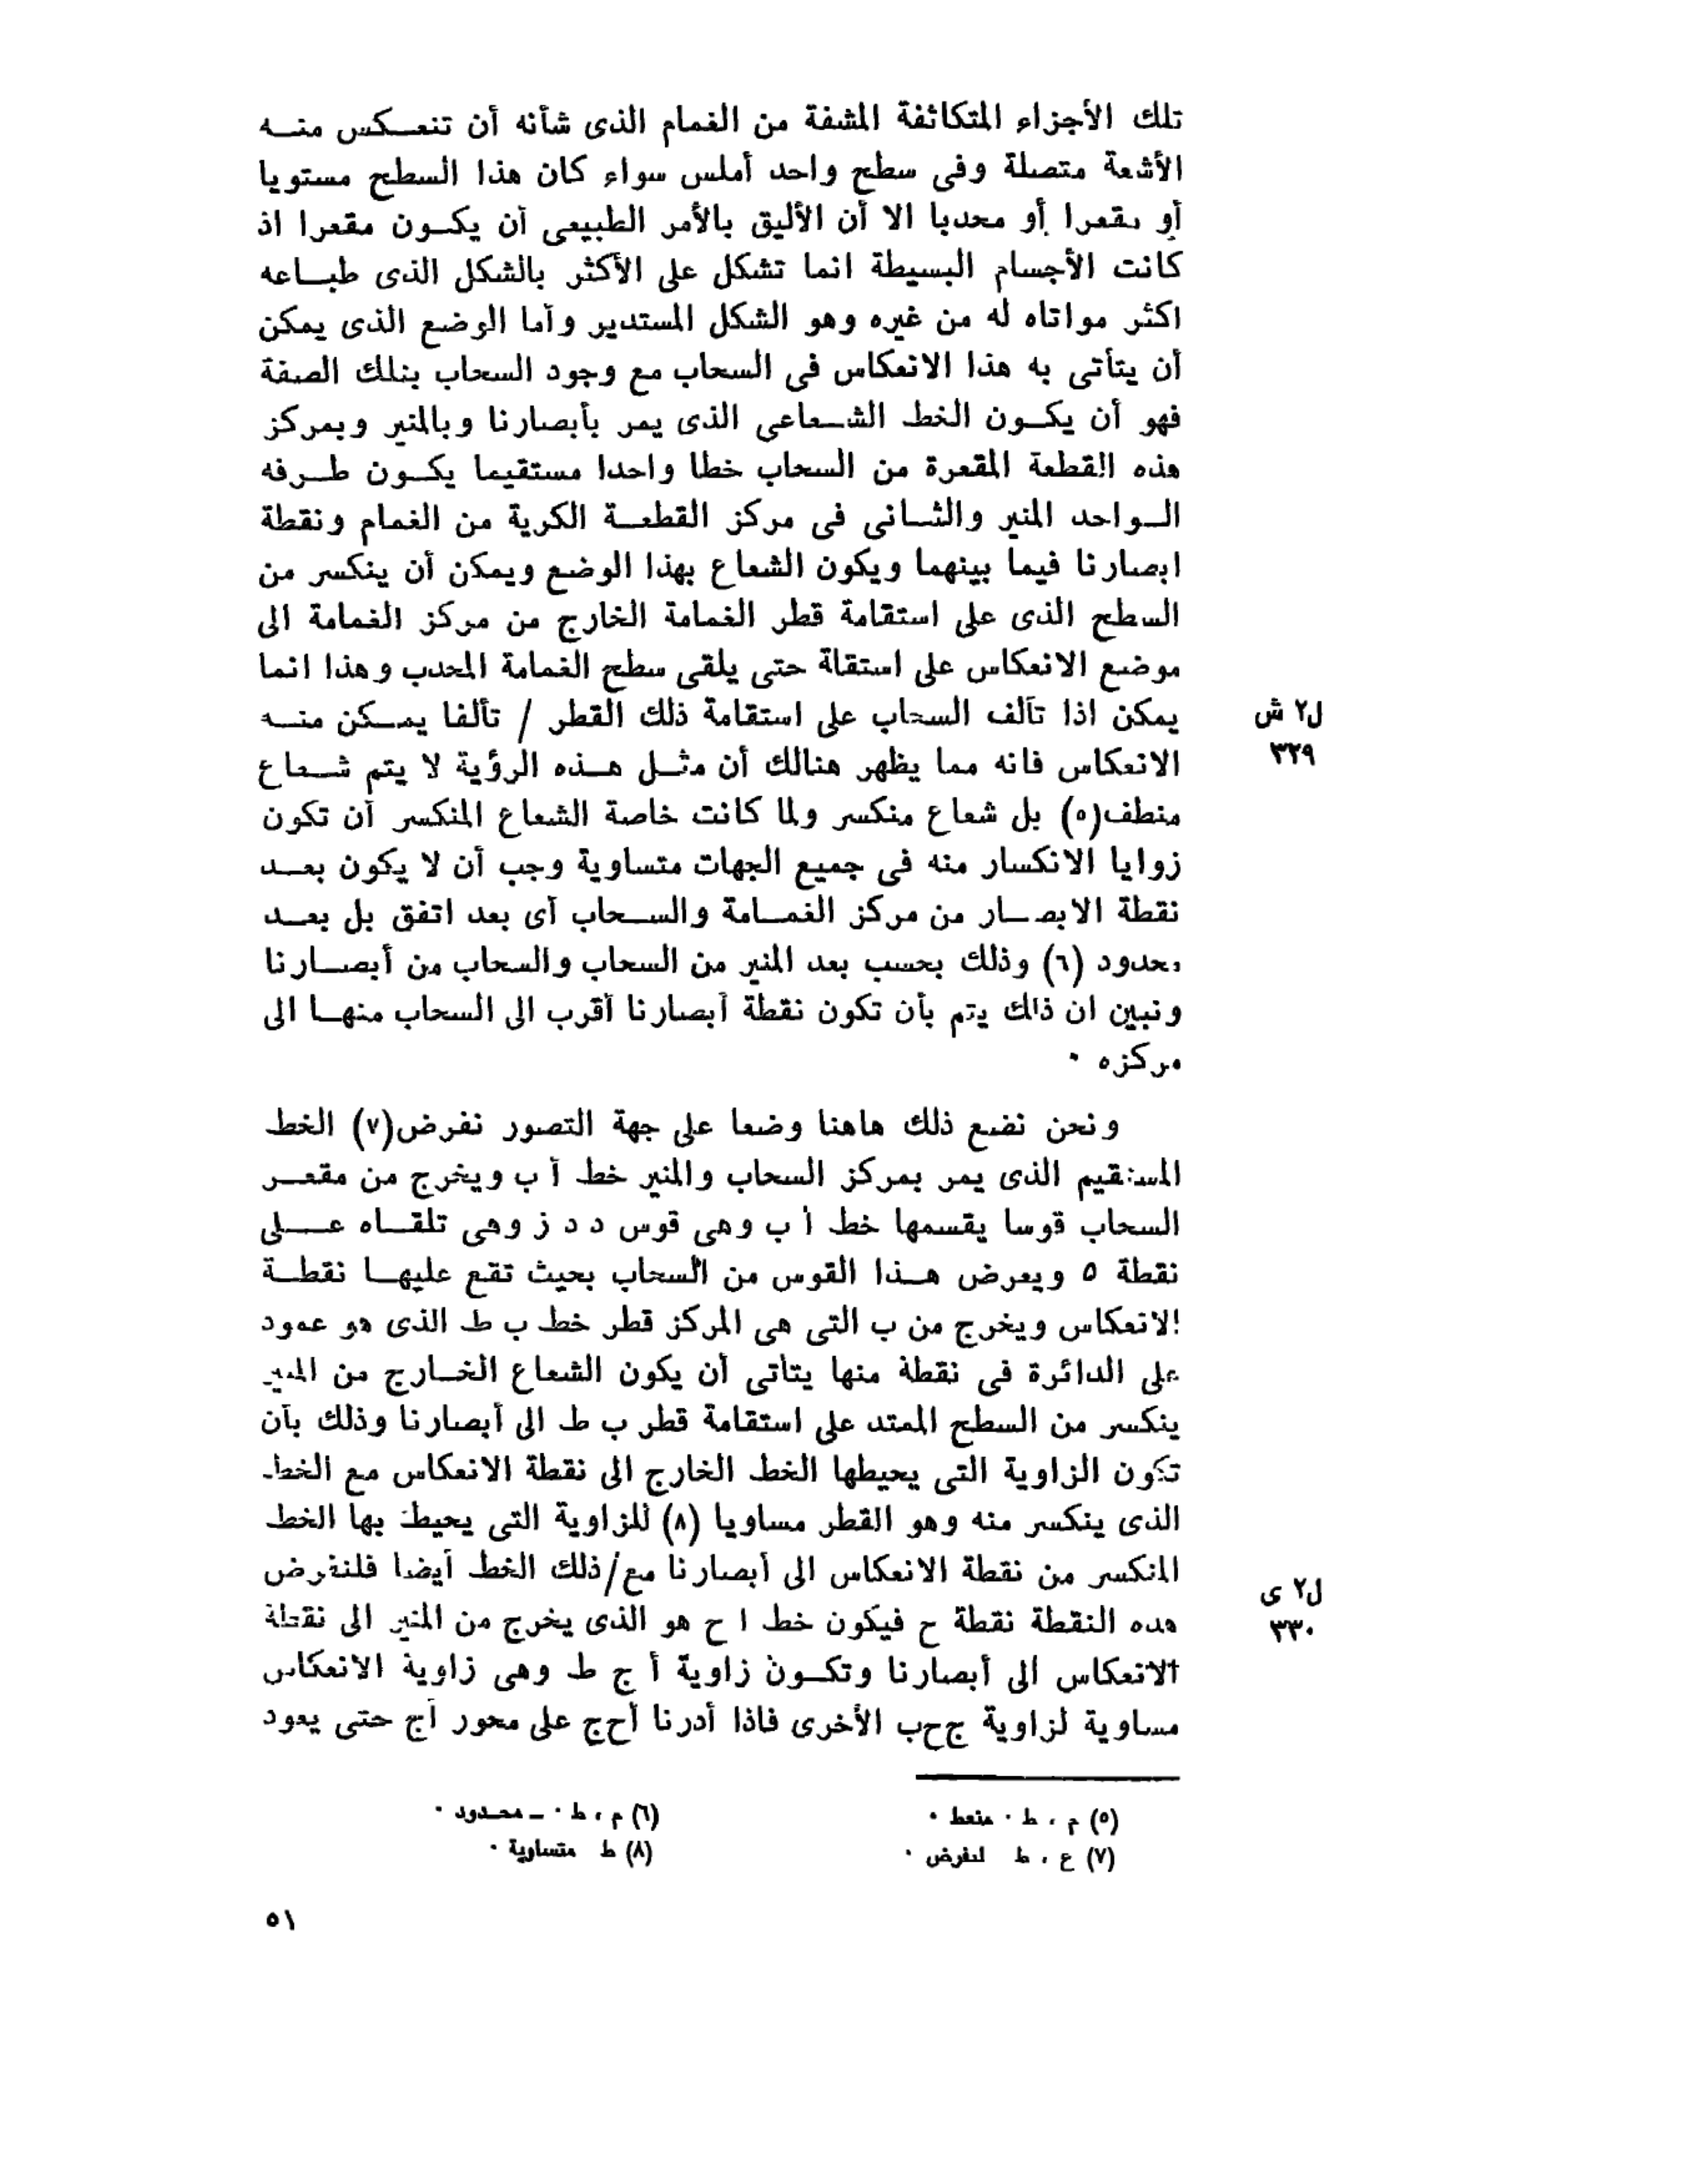 تلك الأجزاء المتكاثفة المشفة من الغمام الذى شأنه أن تنعكس منه
الأشعة متصلة وفى سطح واحد أملس سواء كان هذا السطح مستويا
أو مقعرا أو محدبا الا أن الأليق بالأمر الطبيعى أن يكون مقعرا اذ
كانت الأجسام البسيطة انما تشكل على الأكثر بالشكل الذى طباعه
اكثر مواتاه له من غيره وهو الشكل المستدير وأما الوضع الذى يمكن
أن يتأتى به هذا الانعكاس فى السحاب مع وجود السحاب بتلك الصفة
فهو أن يكون الخط الشعاعى الذى يمر بأبصارنا وبالمنير وبمركز
هذه القطعة المقعرة من السحاب خطا واحدا مستقيما يكون طرفه
الواحد المنير والثانى فى مركز القطعة الكرية من الغمام ونقطة
ابصارنا فيما بينهما ويكون الشعاع بهذا الوضع ويمكن أن ينكسر من
السطح الذى على استقامة قطر الغمامة الخارج من مركز الغمامة الى
موضع الانعكاس على استقالة حتى يلقى سطح الغمامة المحدب وهذا انما
يمكن اذا تآلف السحاب على استقامة ذلك القطر / تألفا يمكن منه
ل٢ ش
٣٢٩
الانعكاس فانه مما يظهر هنالك أن مثل هذه الرؤية لا يتم شعاع
منطف(٥) بل شعاع منكسر ولما كانت خاصة الشعاع المنكسر أن تكون
زوايا الانكسار منه فى جميع الجهات متساوية وجب أن لا يكون بعد
نقطة الابصار من مركز الغمامة والسحاب أى بعد اتفق بل بعد
محدود (٦) وذلك بحسب بعد المنير من السحاب والسحاب من أبصارنا
ونبين ان ذلك يتم بأن تكون نقطة أبصارنا أقرب الى السحاب منها الى
مركزه ٠
ونحن نضع ذلك هاهنا وضعا على جهة التصور نفرض(٧) الخط
المستقيم الذى يمر بمركز السحاب والمنير خط أ ب ويخرج من مقعر
السحاب قوسا يقسمها خط أ ب وهى قوس د د ز وهى تلقاه على
نقطة ٥ ويعرض هذا القوس من السحاب بحيث تقع عليها نقطة
الانعكاس ويخرج من ب التى هى المركز قطر خط ب ط الذى هو عمود
على الدائرة فى نقطة منها يتأتى أن يكون الشعاع الخارج من المنير
ينكسر من السطح الممتد على استقامة قطر ب ط الى أبصارنا وذلك بأن
تكون الزاوية التى يحيطها الخط الخارج الى نقطة الانعكاس مع الخط
الذى ينكسر منه وهو القطر مساويا (٨) للزاوية التى يحيط بها الخط
المنكسر من نقطة الانعكاس الى أبصارنا مع/ذلك الخط أيضا فلنفرض
ل٢ ى
٣٣٠
هذه النقطة نقطة ح فيكون خط ا ح هو الذى يخرج من المنير الى نقطة
الانعكاس الى أبصارنا وتكون زاوية أ ج ط وهى زاوية الانعكاس
مساوية لزاوية ج‍ح‍ب الأخرى فاذا أدرنا أح‍ج على محور أج حتى يعود
(٥) م ، ط ٠ منعط ٠
(٦) م ، ط ٠ ــ محدود ٠
(٧) ع ، ط لنفرض ٠
(٨) ط متساوية ٠
٥١